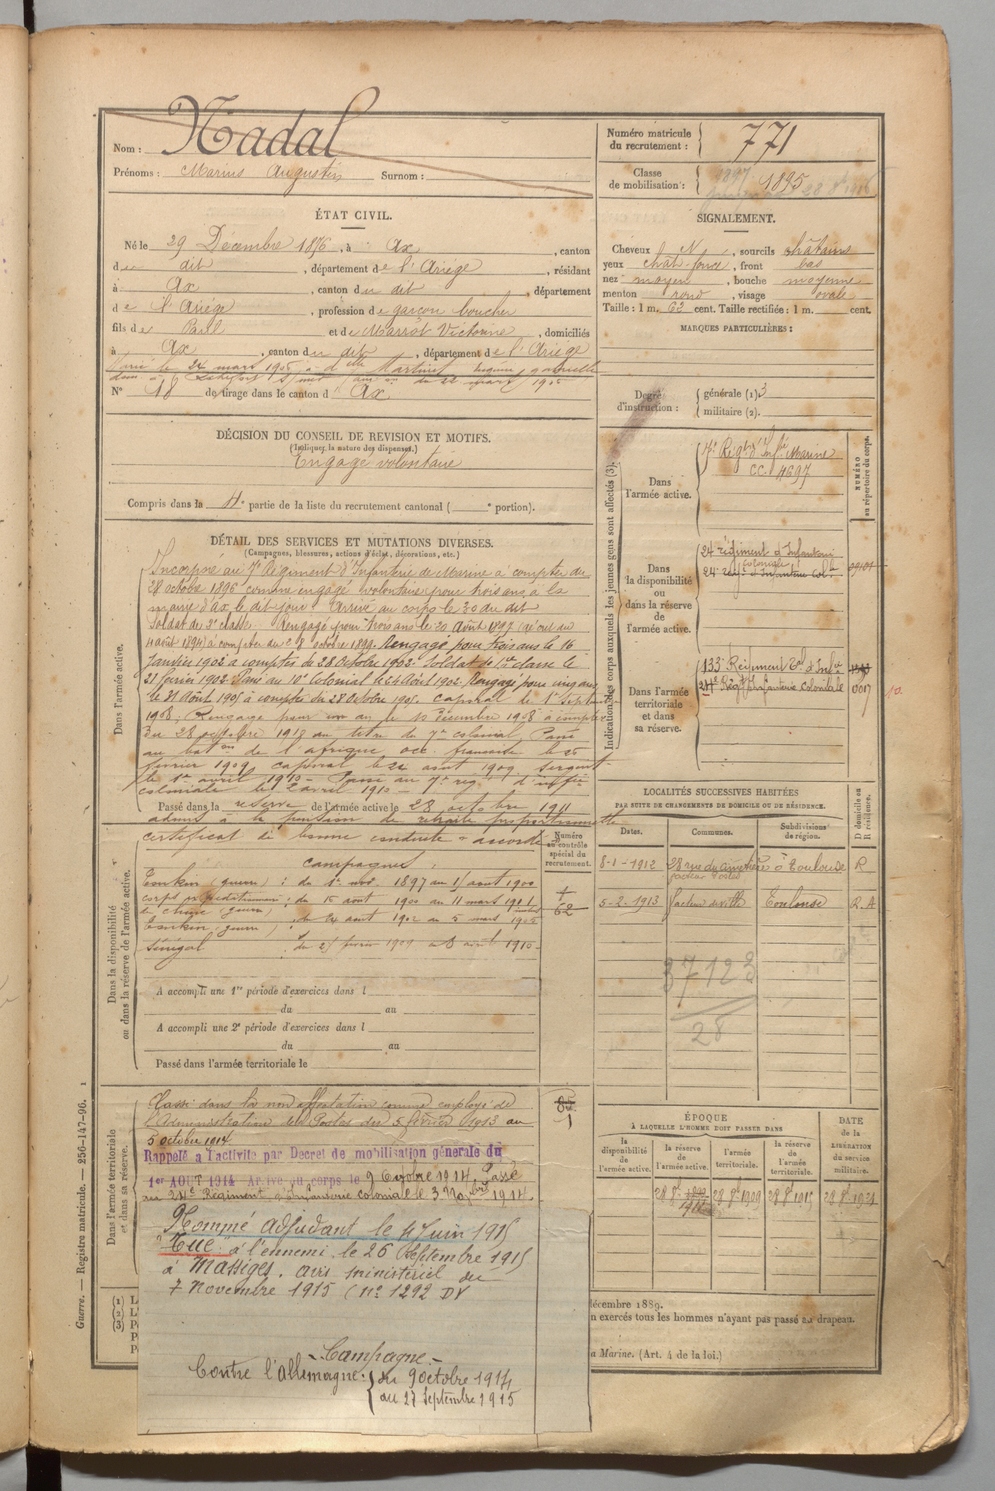 Nom : Nadal
Prénoms : Marius Augustin Surnom :
Numéro matricule du recrutement : 771
Classe de mobilisation : 1895
ÉTAT CIVIL.
Né le 29 Décembre 1876, à Ax, canton
du dit, département de l'Ariège, résidant
à Ax, canton du dit, département
de l'Ariège, profession de garçon boucher
fils de Paul et de Marrot Victorine, domiciliés
à Ax, canton du dit, département de l'Ariège
Marié le 24 mars 1905 à dlle Martinet
N° 18 de tirage dans le canton d'Ax
SIGNALEMENT.
Cheveux N, sourcils châtains
yeux chât. foncé, front bas
nez moyen, bouche moyenne
menton rond, visage ovale
Taille : 1 m. 62 cent. Taille rectifiée : 1 m. cent.
MARQUES PARTICULIÈRES :
Degré d'instruction : générale (1) 3
militaire (2).
DÉCISION DU CONSEIL DE REVISION ET MOTIFS.
(Indiquer la nature des dispenses.)
Engagé volontaire
Compris dans la 4e partie de la liste du recrutement cantonal ( e portion).
DÉTAIL DES SERVICES ET MUTATIONS DIVERSES.
(Campagnes, blessures, actions d'éclat, décorations, etc.)
Dans l'armée active.
Incorporé au 7e Régiment d'Infanterie de Marine à compter du
28 octobre 1896 comme engagé volontaire pour trois ans à la
mairie d'Ax, le dit jour. Arrivé au corps le 30 du dit
Soldat de 2e classe. Rengagé pour trois ans le 20 Août 1897 (décret du
4 août 1894) à compter du 28 octobre 1899. Rengagé pour trois ans le 16
Janvier 1902 à compter du 28 Octobre 1902. Soldat de 1re classe le
21 février 1902. Passé au 10e Colonial le 24 Août 1902. Rengagé pour cinq ans
le 31 Août 1905 à compter du 28 Octobre 1905. Caporal le 1er Septembre
1908. Rengagé pour un an le 10 décembre 1908 à compter
du 28 octobre 1910 au titre du 7e colonial. Passé
au bat.on de l'afrique occ. française le 25
février 1909 caporal le 24 août 1909 sergent
le 1er avril 1910 - Passé au 7e rég.t d'inf.ie
coloniale le 2 avril 1910 -
Passé dans la réserve de l'armée active le 28 octobre 1911
admis à la pension de retraite proportionnelle
certificat de bonne conduite "accordé"
Numéro au contrôle spécial du recrutement.
Dans la disponibilité ou dans la réserve de l'armée active.
campagnes :
Tonkin (guerre) : du 1er nov. 1897 au 14 août 1900
corps expéditionnaire de Chine (guerre) : du 15 août 1900 au 11 mars 1901
Tonkin (guerre) : du 24 août 1902 au 5 mars 1905
Sénégal : du 25 février 1909 au 3 avril 1910 -
A accompli une 1re période d'exercices dans l
du au
A accompli une 2e période d'exercices dans l
du au
Passé dans l'armée territoriale le
Indication des corps auxquels les jeunes gens sont affectés (3).
NUMÉRO au répertoire du corps.
Dans l'armée active. 7e Régt d'Inf.ie Marine
CC. 4697
Dans la disponibilité ou dans la réserve de l'armée active.
24 régiment d'Infanterie coloniale
24e rég.t d'Infanterie col.le
Dans l'armée territoriale et dans sa réserve.
133e Régiment T.al d'Inf.ie
24e Rég.t Infanterie coloniale 0017
LOCALITÉS SUCCESSIVES HABITÉES
PAR SUITE DE CHANGEMENTS DE DOMICILE OU DE RÉSIDENCE.
Dates. Communes. Subdivisions de région. D domicile ou R résidence.
8-1-1912 28 rue du cimetière à Toulouse R
facteur Postes
5-2-1913 facteur de ville Toulouse R. A
37123
28
Dans l'armée territoriale et dans sa réserve.
Classé dans la non affectation comme employé de
l'Administration des Postes du 5 février 1913 au
5 octobre 1914.
Rappelé à l'activité par Decret de mobilisation générale du
1er AOUT 1914 Arrivé au corps le 9 Octobre 1914. Passé
au 24e Régiment d'Infanterie coloniale le 3 1914.
Nommé Adjudant le 4 Juin 1915
"Tué" à l'ennemi le 26 Septembre 1915
à Massiges. Avis ministériel du
7 Novembre 1915 (n° 1292 DV
- Campagne -
Contre l'allemagne : du 9 octobre 1914
au 27 Septembre 1915
ÉPOQUE
À LAQUELLE L'HOMME DOIT PASSER DANS
la disponibilité de l'armée active. la réserve de l'armée active. l'armée territoriale. la réserve de l'armée territoriale.
DATE de la LIBÉRATION du service militaire.
28 8e 1899 28 8e 1909 28 8e 1915 28 8e 1921
décembre 1889.
n exercés tous les hommes n'ayant pas passé au drapeau.
a Marine. (Art. 4 de la loi.)
Guerre. — Registre matricule. — 256-147-96. 1